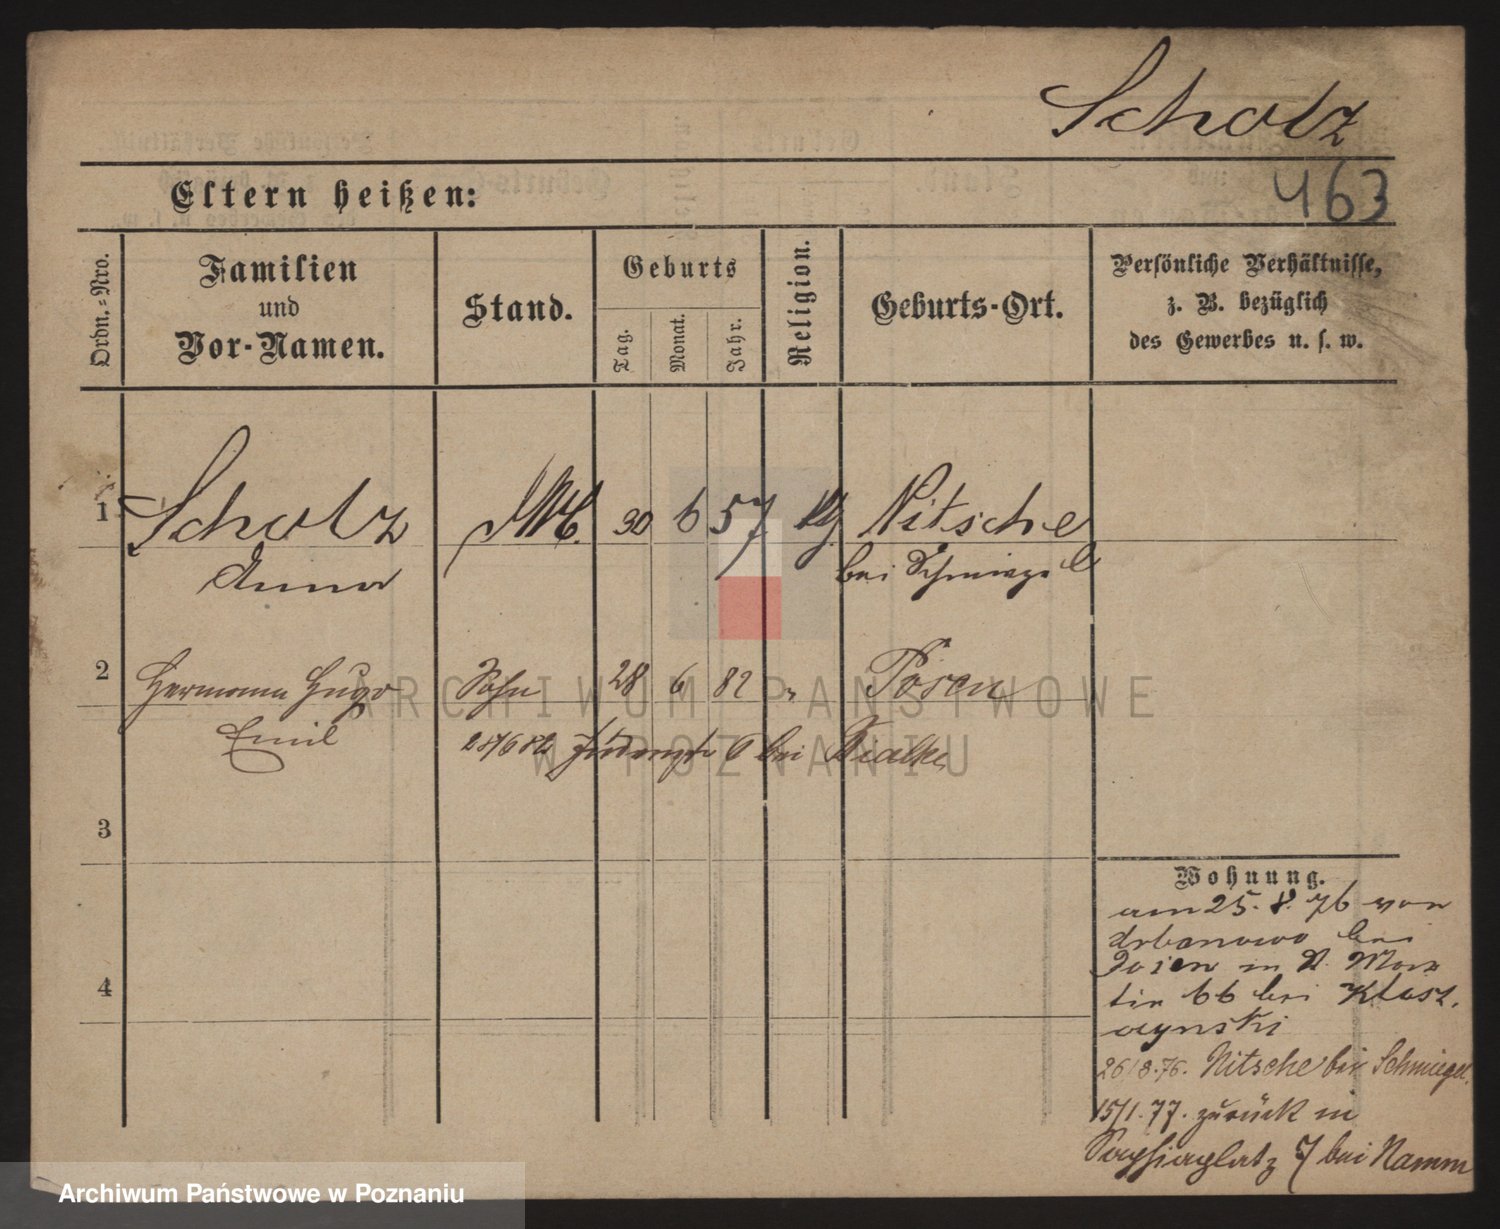 Scholz
Eltern heißen:
463
Ordn.=Nro.
Familien
und
Vor-Namen.
Stand.
Geburts
Tag.
Monat.
Jahr.
Religion.
Geburts-Ort.
Persönliche Verhältnisse,
z. B. bezüglich
des Gewerbes u. s. w.
1
Scholz 30 6 57 Nitsche
Anna bei Schmiegel
2
Hermann Hugo Sohn 28 6 82 " Posen
Emil 28/6 82 6 bei Bialke
3
4
Wohnung.
am 25. 8. 76 von
Urbanowo bei
Posen in St. Mar
tin 66 bei Klosz
czynski
26/8.76. Nitsche bei Schmiegel.
15/1.77. zurück in
Saphiaplatz 7 bei Namm
ARCHIWUM PAŃSTWOWE
W POZNANIU
Archiwum Państwowe w Poznaniu